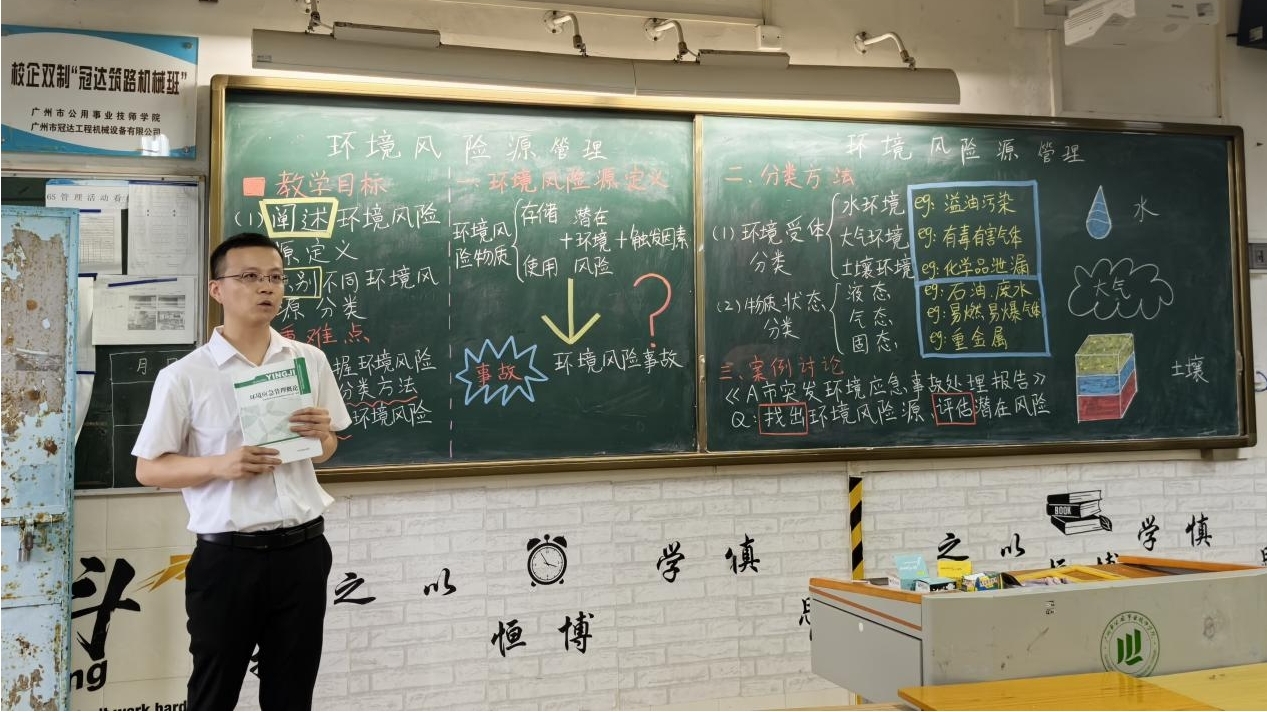 校企双制“冠达筑路机械班”
广州市公用事业技师学院
广州市冠达工程机械设备有限公司
6S管理活动看
月
环境风险源管理
教学目标
(1)阐述环境风险
源定义
别不同环境风
源分类
重难点
握环境风险
分类方法
环境风险
一.环境风险源定义
环境风险物质
存储
使用
+
潜在环境风险
+触发因素
?
事故
环境风险事故
环境风险源管理
二.分类方法
(1)环境受体分类
水环境 eg:溢油污染
大气环境 eg:有毒有害气体
土壤环境 eg:化学品泄漏
(2)物质状态分类
液态 eg:石油、废水
气态 eg:易燃、易爆气体
固态 eg:重金属
三.案例讨论
《A市突发环境应急事故处理报告》
Q:找出环境风险源、评估潜在风险
水
大气
土壤
YINGJI
环境应急管理概论
斗
ng
work hard
之以
恒
学慎
博
思
之以
恒
BOOK
学慎
博